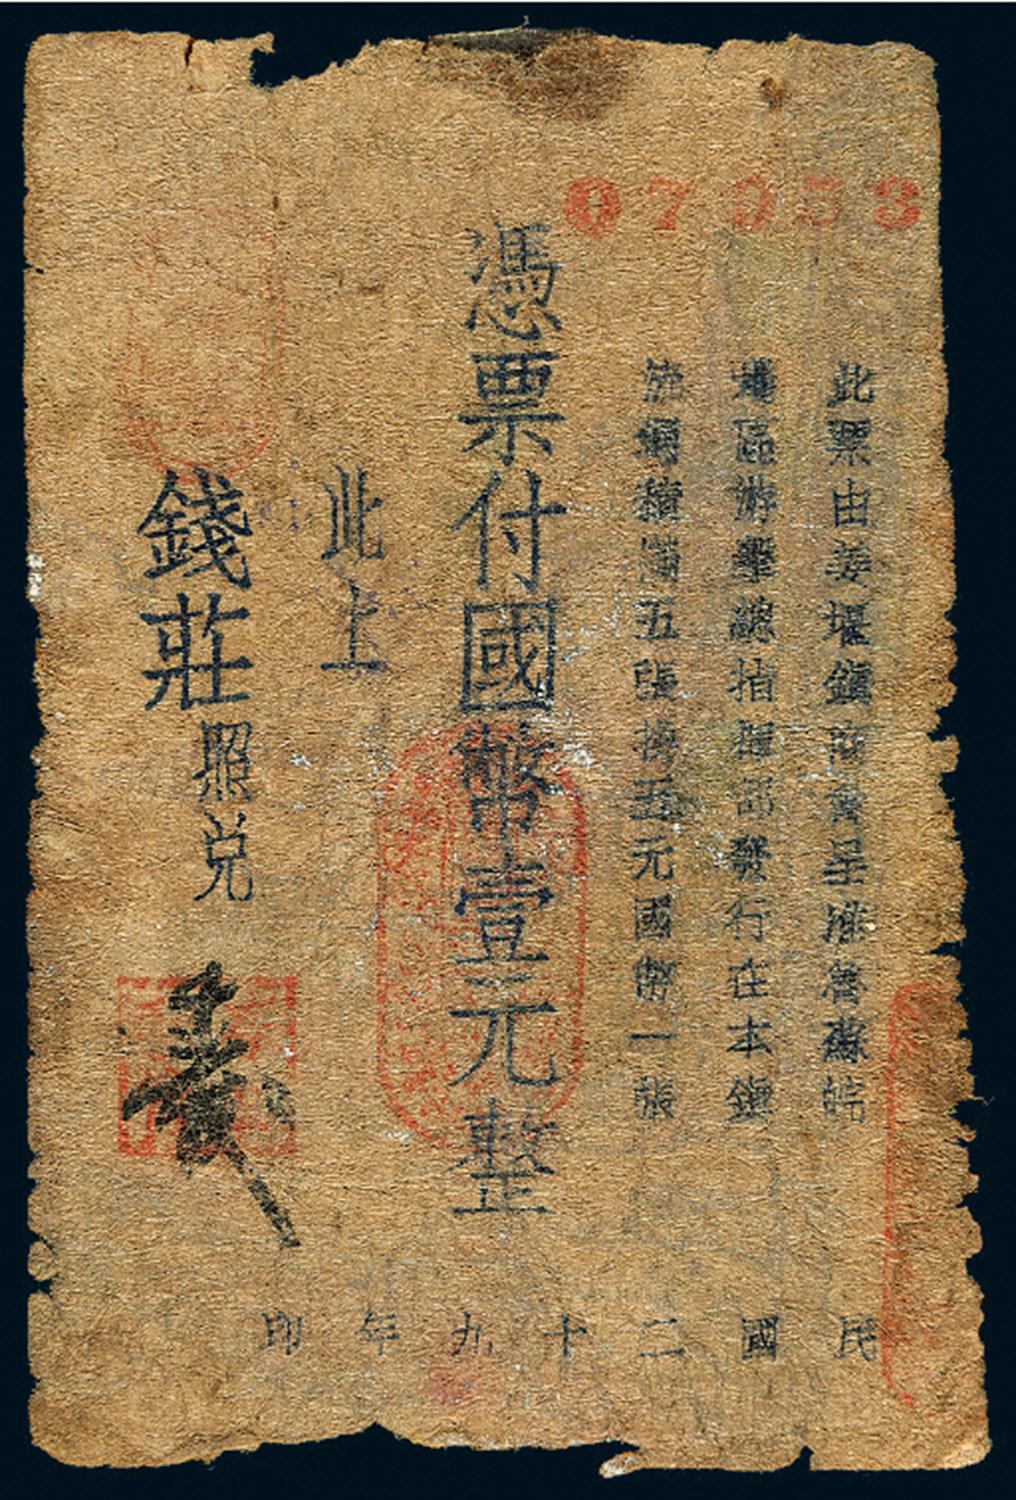 07953
此票由姜堰鎮商會呈准魯蘇皖
邊區游擊總指揮部發行在本鎮
流通積滿五張換五元國幣一張
憑票付國幣壹元整
此上
錢莊照兑
民國二十九年印